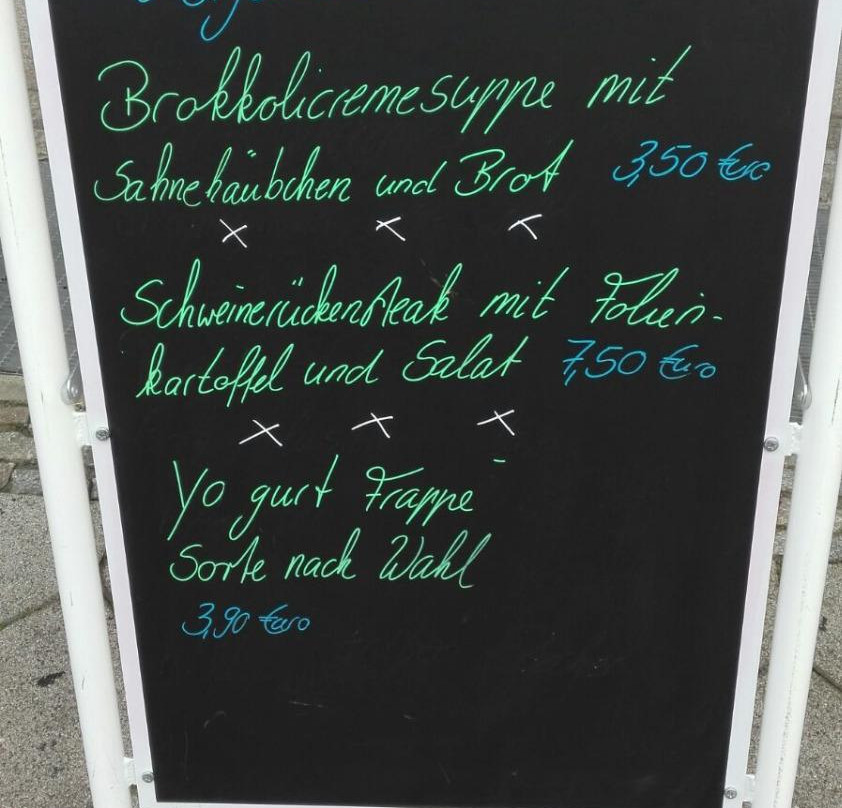 Brokkolicremesuppe mit
Sahnehäubchen und Brot 3,50 Euro
x x x
Schweinerückensteak mit Folien-
kartoffel und Salat 7,50 Euro
x x x
Yogurt Frappé
Sorte nach Wahl
3,90 Euro